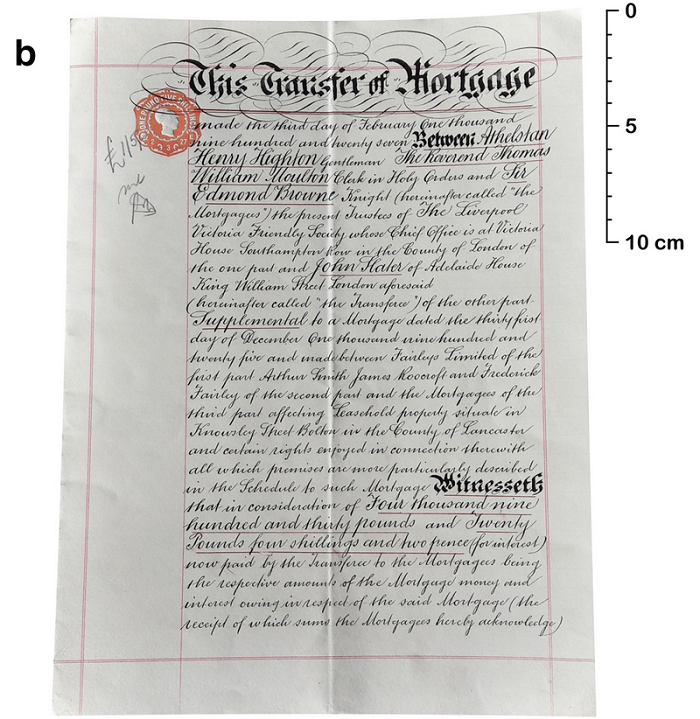 b
0
5
10 cm
This Transfer of Mortgage
made the third day of February One thousand
nine hundred and twenty seven Between Athelstan
Henry Highton Gentleman The Reverend Thomas
William Moulton Clerk in Holy Orders and Sir
Edmond Browne Knight (hereinafter called "the
Mortgagees") the present Trustees of The Liverpool
Victoria Friendly Society whose Chief Office is at Victoria
House Southampton Row in the County of London of
the one part and John Slater of Adelaide House
King William Street London aforesaid
(hereinafter called "the Transferee") of the other part
Supplemental to a Mortgage dated the thirty first
day of December One thousand nine hundred and
twenty five and made between Fairleys Limited of the
first part Arthur Smith James Roocroft and Frederick
Fairley of the second part and the Mortgagees of the
third part affecting Leasehold property situate in
Knowsley Street Bolton in the County of Lancaster
and certain rights enjoyed in connection therewith
all which premises are more particularly described
in the Schedule to such Mortgage Witnesseth
that in consideration of Four thousand nine
hundred and thirty pounds and Twenty
Pounds four shillings and two pence (for interest)
now paid by the Transferee to the Mortgagees being
the respective amounts of the Mortgage money and
interest owing in respect of the said Mortgage (the
receipt of which sums the Mortgagees hereby acknowledge)